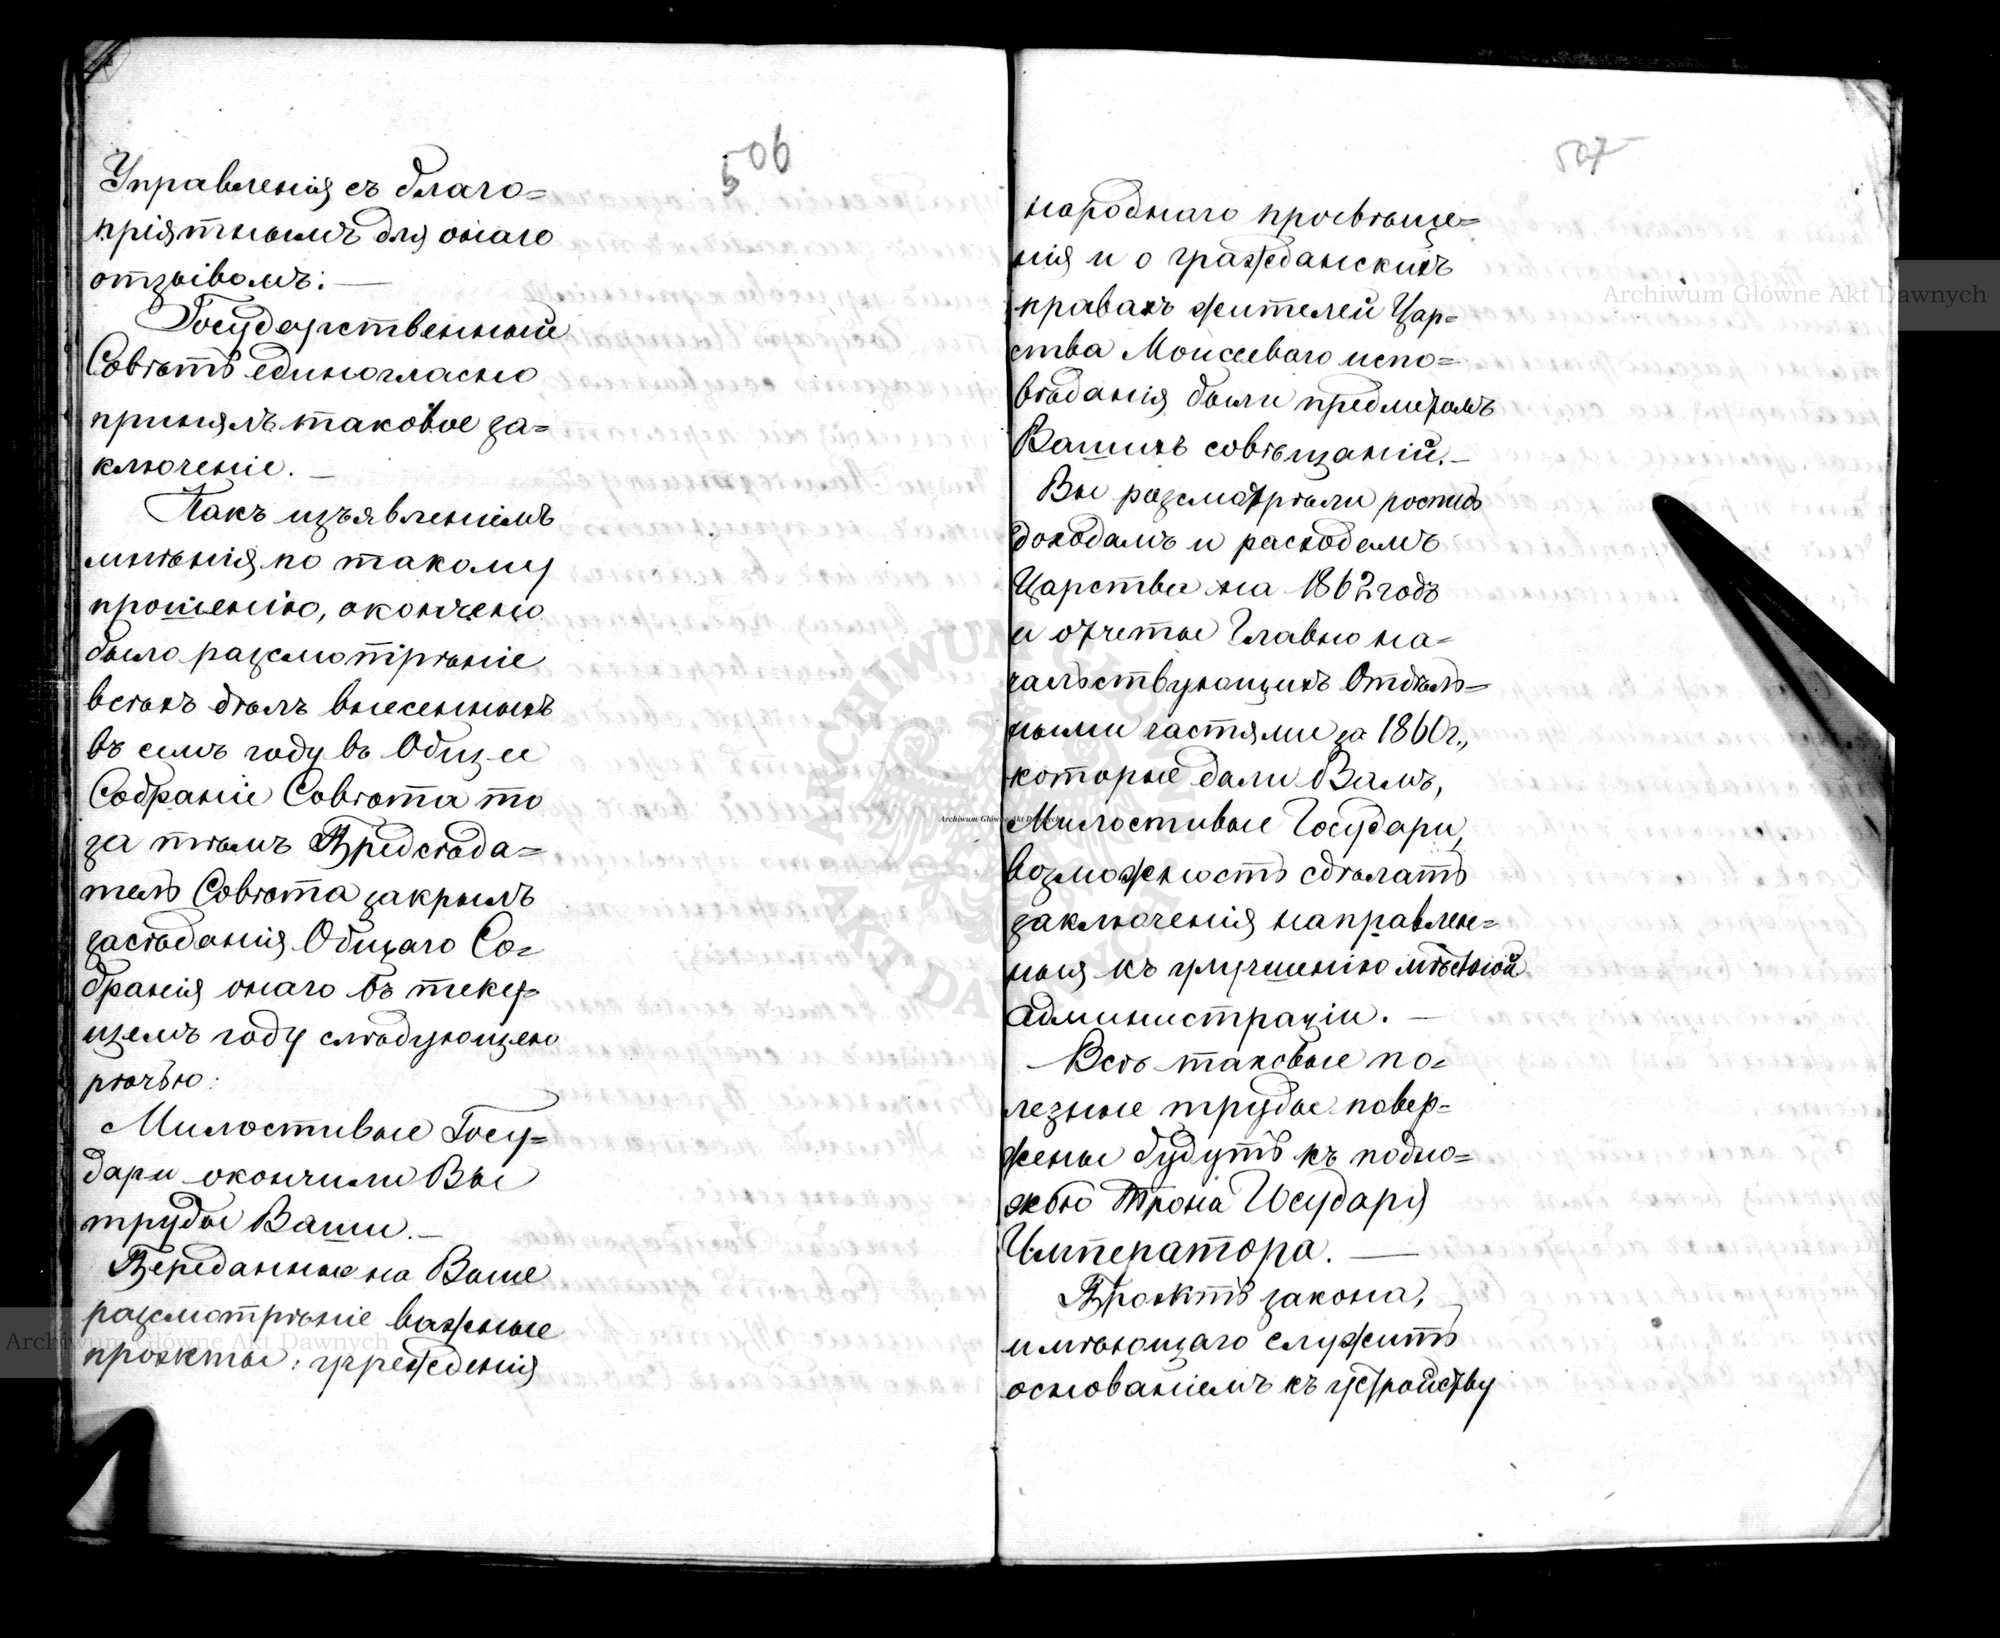 506
Управленія съ благо=
пріятнымъ для онаго
отзывомъ: —
Государственный
Совѣтъ единогласно
принялъ таковое за=
ключеніе. —
Такъ изъявленіемъ
мнѣнія по такому
прошенію, окончено
было разсмотрѣніе
всѣхъ дѣлъ внесенныхъ
въ семъ году въ Общее
Собраніе Совѣта то
за тѣмъ Предсѣда=
тель Совѣта закрылъ
засѣданія Общаго Со=
бранія онаго въ теку=
щемъ году слѣдующею
рѣчью:
Милостивые Госу=
дари окончили Вы
труды Ваши. —
Переданные на Ваше
разсмотрѣніе важные
проэкты: учрежденія
507
народнаго просвѣще=
нія и о гражданскихъ
правахъ жителей Цар=
ства Моисеева го испо=
вѣданія были предметомъ
Вашихъ совѣщаній. —
Вы разсмотрѣли роспись
доходамъ и расходамъ
Царства на 1862 годъ
и отчеты Главно на=
чальствующихъ Отдѣль=
ными частями за 1860 г.,
которые дали Вамъ,
Милостивые Государи,
возможность сдѣлать
заключенія направлен=
ныя къ улучшенію мѣстной
администраціи. —
Всѣ таковые по=
лезные труды повер=
жены будутъ къ подно=
жью Трона Государя
Императора. —
Проэктъ закона,
имѣющаго служить
основаніемъ къ устройству
Archiwum Główne Akt Dawnych
Archiwum Główne Akt Dawnych
Archiwum Główne Akt Dawnych
ARCHIWUM GŁÓWNE AKT DAWNYCH